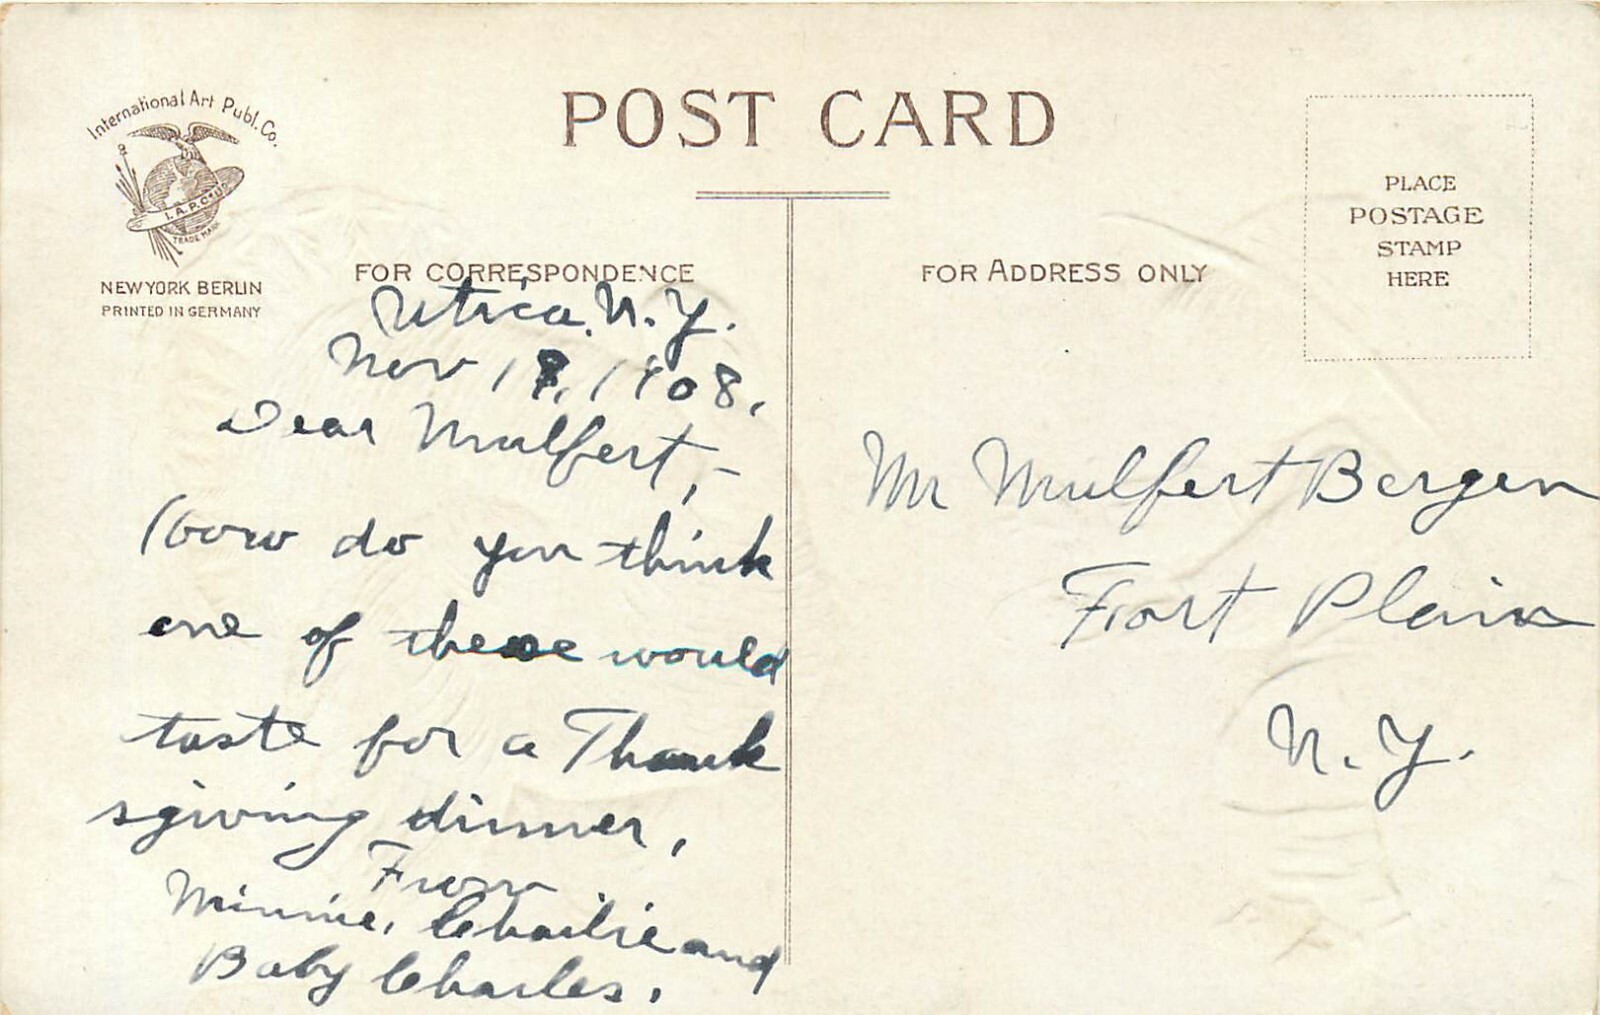 International Art Publ. Co.
I. A. P. Co
TRADE MARK
NEW YORK BERLIN
PRINTED IN GERMANY
POST CARD
FOR CORRESPONDENCE
FOR ADDRESS ONLY
PLACE
POSTAGE
STAMP
HERE
Utica, N. Y.
Nov 1 , 1908.
Dear Mulfert, -
How do you think
one of these would
taste for a Thank
sgiving dinner,
From
Minnie, Charlie and
Baby Charles.
Mr Mulfert Bergen
Fort Plain
N. Y.